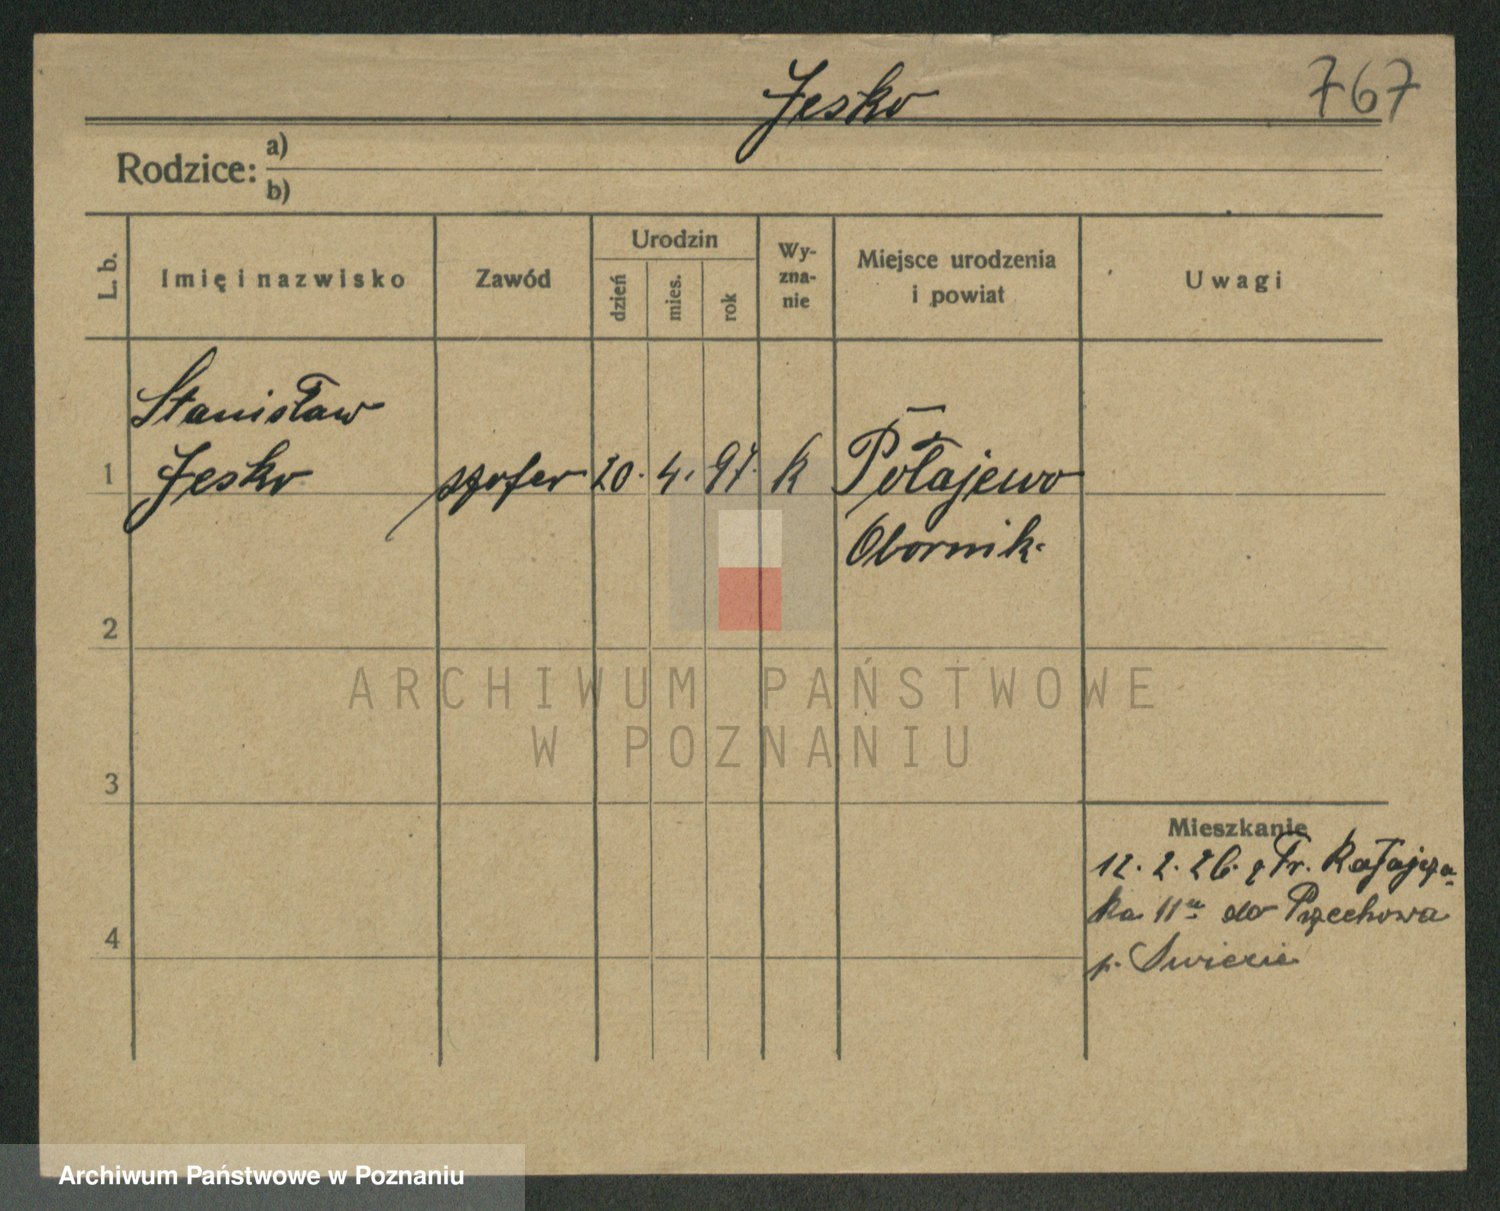 Jesko
767
Rodzice: a)
b)
L. b.
Imię i nazwisko
Zawód
Urodzin
dzień
mies.
rok
Wy-
zna-
nie
Miejsce urodzenia
i powiat
Uwagi
Stanisław
1 Jesko szofer 20. 4. 97. k Połajewo
Obornik.
2
ARCHIWUM PAŃSTWOWE
W POZNANIU
3
Mieszkanie
12. 2. 26. z Fr. Ratajcza-
ka 11a do Przechowa
4
p. Swiecie
Archiwum Państwowe w Poznaniu